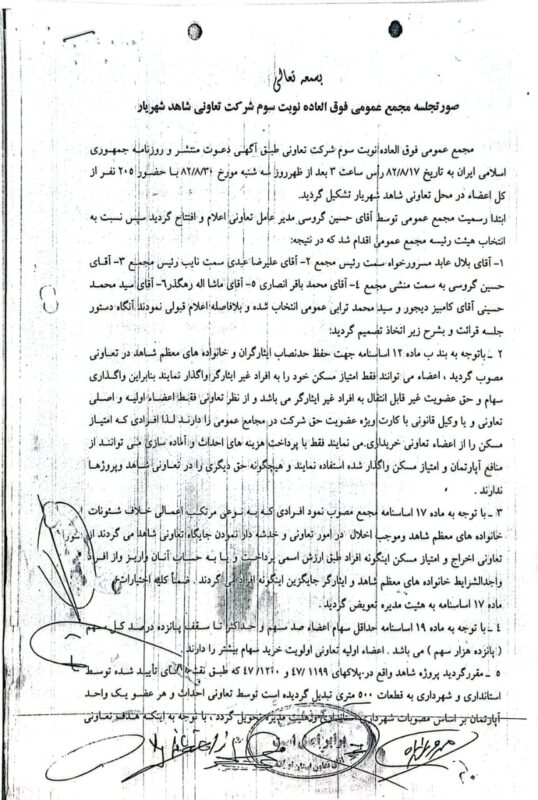 بسمه تعالی
صورتجلسه مجمع عمومی فوق العاده نوبت سوم شرکت تعاونی شاهد شهریار
مجمع عمومی فوق العاده نوبت سوم شرکت تعاونی طبق آگهی دعوت منتشر و روزنامه جمهوری
اسلامی ایران به تاریخ ۸۲/۸/۱۷ راس ساعت ۳ بعد از ظهرروز سه شنبه مورخ ۸۲/۸/۳۰ با حضور ۲۰۵ نفر از
کل اعضاء در محل تعاونی شاهد شهریار تشکیل گردید.
ابتدا رسمیت مجمع عمومی توسط آقای حسین گروسی مدیر عامل تعاونی اعلام و افتتاح گردید سپس نسبت به
انتخاب هیئت رئیسه مجمع عمومی اقدام شد که در نتیجه:
۱- آقای بلال عابد مسرورخواه سمت رئیس مجمع ۲- آقای علیرضا عبدی سمت نایب رئیس مجمع ۳- آقای
حسین گروسی به سمت منشی مجمع ۴- آقای محمد باقر انصاری ۵- آقای ماشا اله رهگذر۶- آقای سید محمد
حسینی آقای کامبیز دیجور و سید محمد ترابی عمومی انتخاب شده و بلافاصله اعلام قبولی نمودند آنگاه دستور
جلسه قرائت و بشرح زیر اتخاذ تصمیم گردید:
۲ - باتوجه به بند ب ماده ۱۲ اساسنامه جهت حفظ حدنصاب ایثارگران و خانواده های معظم شاهد در تعاونی
مصوب گردید ، اعضاء می توانند فقط امتیاز مسکن خود را به افراد غیر ایثارگر واگذار نمایند بنابراین واگذاری
سهام و حق عضویت غیر قابل انتقال به افراد غیر ایثارگر می باشد و از نظر تعاونی فقط اعضاء اولیه و اصلی
تعاونی و یا وکیل قانونی با کارت ویژه عضویت حق شرکت در مجامع عمومی را دارند لذا افرادی که امتیاز
مسکن را از اعضاء تعاونی خریداری می نمایند فقط با پرداخت هزینه های احداث و آماده سازی می توانند از
منافع آپارتمان و امتیاز مسکن واگذار شده استفاده نمایند و هیچگونه حق دیگری را در تعاونی شاهد وپروژها
ندارند .
۳ - با توجه به ماده ۱۷ اساسنامه مجمع مصوب نمود افرادی که به نوعی مرتکب اعمالی خلاف شئونات
خانواده های معظم شاهد وموجب اخلال در امور تعاونی و خدشه دار نمودن جایگاه تعاونی شاهد می گردند از
تعاونی اخراج و امتیاز مسکن اینگونه افراد طبق ارزش اسمی پرداخت و یا به حساب آنان واریز واز افراد
واجدالشرایط خانواده های معظم شاهد و ایثارگر جایگزین اینگونه افراد می گردند . ضمنا کلیه اختیارات
ماده ۱۷ اساسنامه به هئیت مدیره تعویض گردید .
۴ - با توجه به ماده ۱۹ اساسنامه حداقل سهام اعضاء صد سهم و حداکثر تا سقف پانزده درصد کل سهم
( پانزده هزار سهم ) می باشد . اعضاء اولیه تعاونی اولویت خرید سهام بیشتر را دارند
۵ - مقررگردید پروژه شاهد واقع در پلاکهای ۴۷/۱۱۹۹ و ۴۷/۱۲۰۰ که طبق نقشه های تأیید شده توسط
استانداری و شهرداری به قطعات ۵۰۰ متری تبدیل گردیده است توسط تعاونی احداث و هر عضو یک واحد
آپارتمان بر اساس مصوبات شهرداری استانداری و هئیت مدیره تحویل گردد . با توجه به اینکه هدف تعاونی
برابر اصل است